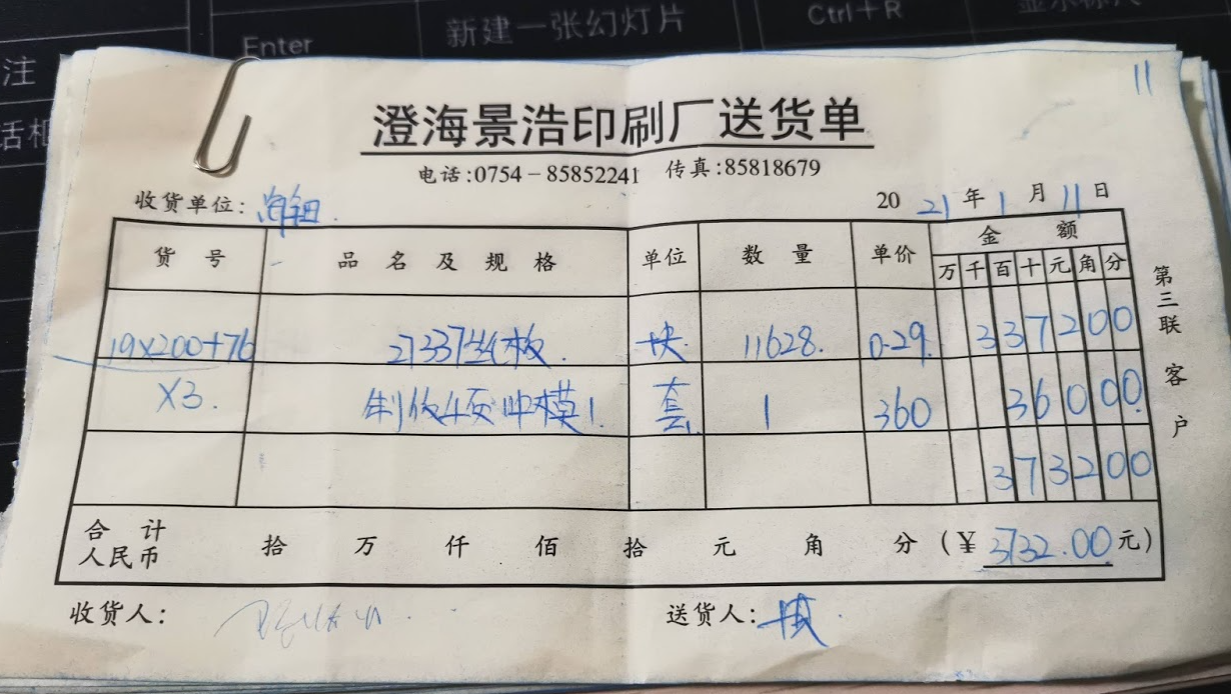 注
Enter
新建一张幻灯片
Ctrl+R
11
澄海景浩印刷厂送货单
电话:0754-85852241 传真:85818679
收货单位: 20 21 年 1 月 11 日
货号 品名及规格 单位 数量 单价 金额
万 千 百 十 元 角 分
19×200+76 27337 板. 块 11628. 0.29. 3 3 7 2 0 0
×3. 制版4页冲模1 套 1 360 3 6 0 0 0
3 7 3 2 0 0
合计
人民币 拾 万 仟 佰 拾 元 角 分 (¥ 3732.00 元)
收货人: 送货人:
第三联 客户